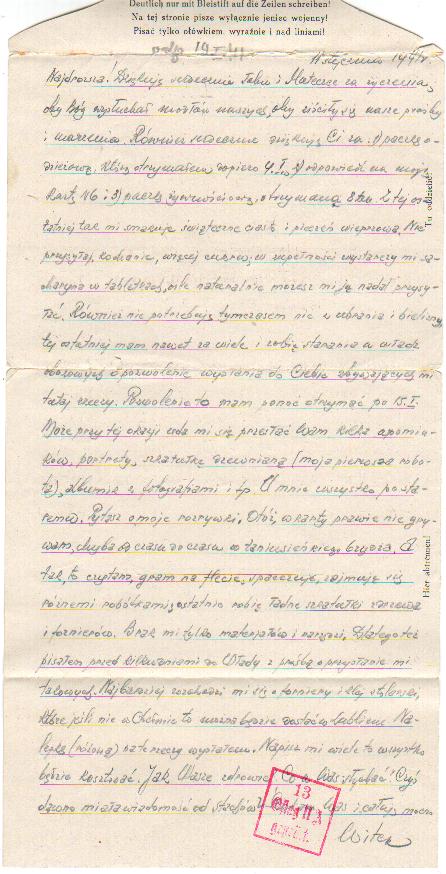 Deutlich nur mit Bleistift auf die Zeilen schreiben!
Na tej stronie pisze wyłącznie jeniec wojenny!
Pisać tylko ołówkiem, wyraźnie i nad liniami!
stycznia 1941r.
Najdroższa! Dziękuję serdecznie Tobie i Mateczce za życzenia,
oby Bóg wysłuchał modłów naszych, oby ziściły się nasze prośby
i marzenia. Również serdecznie dziękuję Ci za 1) paczkę o-
dzieżową, którą otrzymałem dopiero 4.I., 2) odpowiedź na moją
kartę i 3) paczkę żywnościową, otrzymaną 8 bm. Z tej os-
tatniej tak mi smakuje świąteczne ciasto i pieczeń wieprzowa. Nie
przysyłaj, kochanie, więcej cukru, w zupełności wystarczy mi sa-
charyna w tabletkach, ale naturalnie możesz mi ją nadal przysy-
łać. Również nie potrzebuję tymczasem nic z ubrania i bielizny,
tej ostatniej mam nawet za wiele i robię starania u władz
obozowych o pozwolenie wysłania do Ciebie zbywających mi
tutaj rzeczy. Pozwolenie to mam ponoć otrzymać po 15.I.
Może przy tej okazji uda mi się przesłać Wam kilka upomin-
ków, portrety, szkatułkę drewnianą (moja pierwsza robo-
ta), albumik z fotografiami i tp. U mnie wszystko po sta-
remu. Pytasz o moje rozrywki, Otóż, w karty prawie nie gry-
wam, chyba od czasu do czasu w taniusieńkiego brydża. A
tak, to czytam, gram na flecie, spaceruję, zajmuję się
różnymi robótkami, ostatnio robię ładne szkatułki z drzewa
i fornierów. Brak mi tylko materjałów i narzędzi, dlatego też
pisałem przed kilku dniami do Władzy z prośbą o przysłanie mi
takowych. Najbardziej rozchodzi mi się o forniery i klej stolarski,
które jeśli nie w Chełmie to można będzie dostać w Lublinie. Na-
leżną za te rzeczy wypłacę. Napisz mi wiele to wszystko
będzie kosztować. Jak Wasze zdrowie? Co u Was słychać? Czyś
dawno miała wiadomość od Was i całuję mocno
Witek
13
geprüft
Tu oddzielić!
Hier abtrennen!